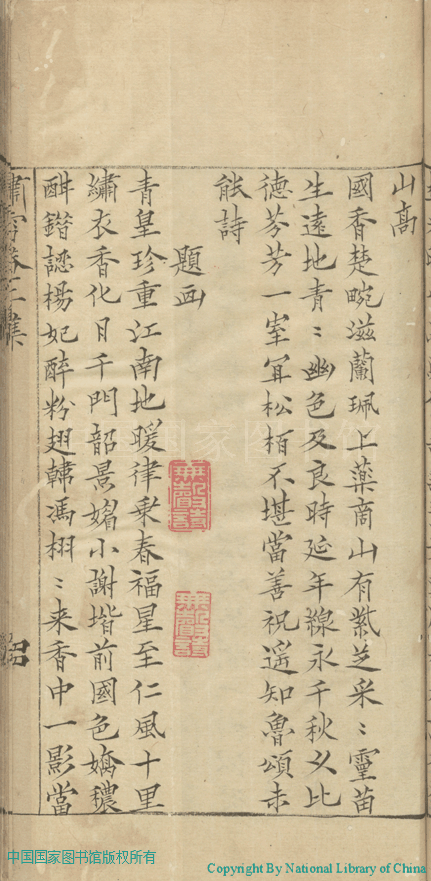 山高
國香楚畹滋蘭珮上藥商山有紫芝采〻靈苗
生遠地青〻幽色及良時延年綠永千秋以比
德芬芳一室宜松栢不堪當善祝遥知魯頌未
能詩
題画
青皇珍重江南地暖律乗春福星至仁風十里
繡衣香化日千門韶景媚小謝堦前國色嬌穠
酣錯認楊妃醉粉翅韓馮栩〻来香中一影當
中国国家图书馆版权所有
Copyright By National Library of China